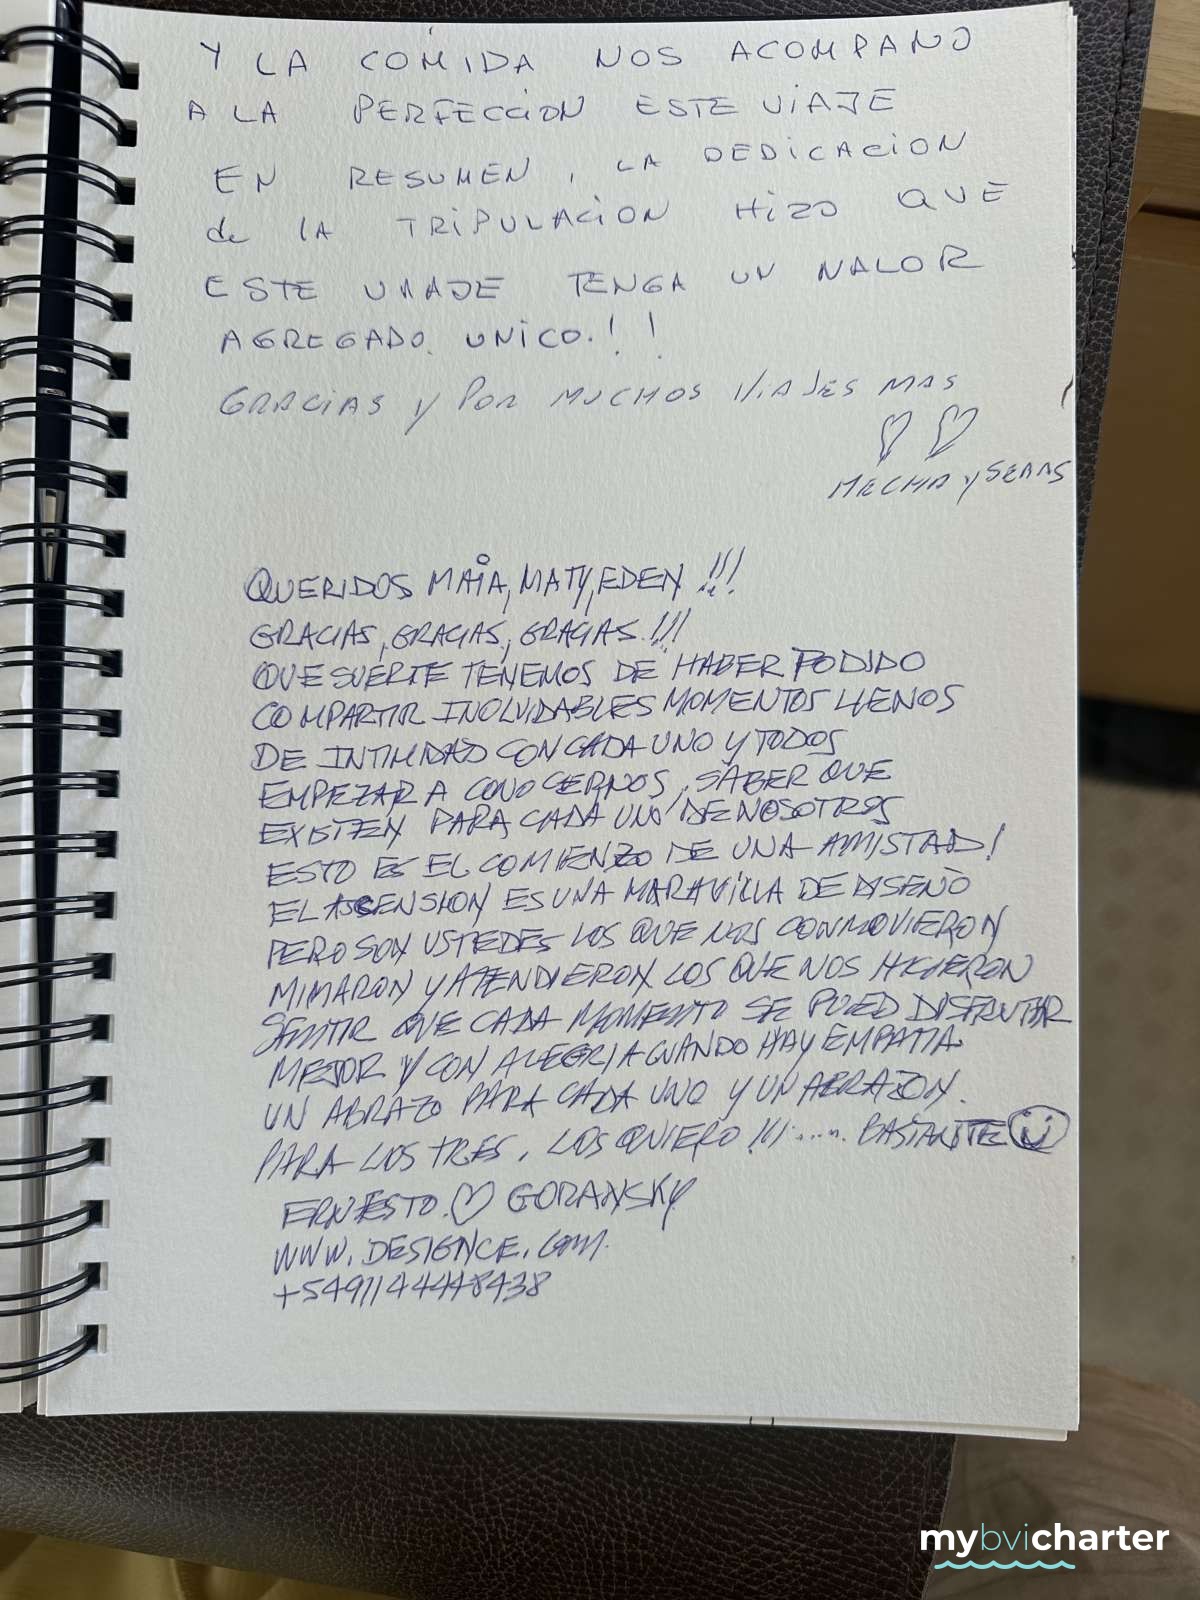 Y LA COMIDA NOS ACOMPAÑO
A LA PERFECCION ESTE VIAJE
EN RESUMEN, LA DEDICACION
de LA TRIPULACION HIZO QUE
ESTE VIAJE TENGA UN VALOR
AGREGADO UNICO.!!
GRACIAS Y POR MUCHOS VIAJES MAS
MECHA Y SEBAS
QUERIDOS MAIA, MATY, EDEN !!!
GRACIAS, GRACIAS, GRACIAS.!!!
QUE SUERTE TENEMOS DE HABER PODIDO
COMPARTIR INOLVIDABLES MOMENTOS LLENOS
DE INTIMIDAD CON CADA UNO Y TODOS
EMPEZAR A CONOCERNOS, SABER QUE
EXISTEN PARA CADA UNO DE NOSOTROS
ESTO ES EL COMIENZO DE UNA AMISTAD!
EL ASCENSION ES UNA MARAVILLA DE DISEÑO
PERO SON USTEDES LOS QUE NOS CONMOVIERON
MIMARON Y ATENDIERON LOS QUE NOS HICIERON
SENTIR QUE CADA MOMENTO SE PUED DISFRUTAR
MEJOR Y CON ALEGRIA CUANDO HAY EMPATIA.
UN ABRAZO PARA CADA UNO Y UN ABRAZON.
PARA LOS TRES, LOS QUIERO!!!..... BASTANTE
ERNESTO GORANSKY
WWW.DESIGNCE.COM.
+5491144448438
mybvicharter